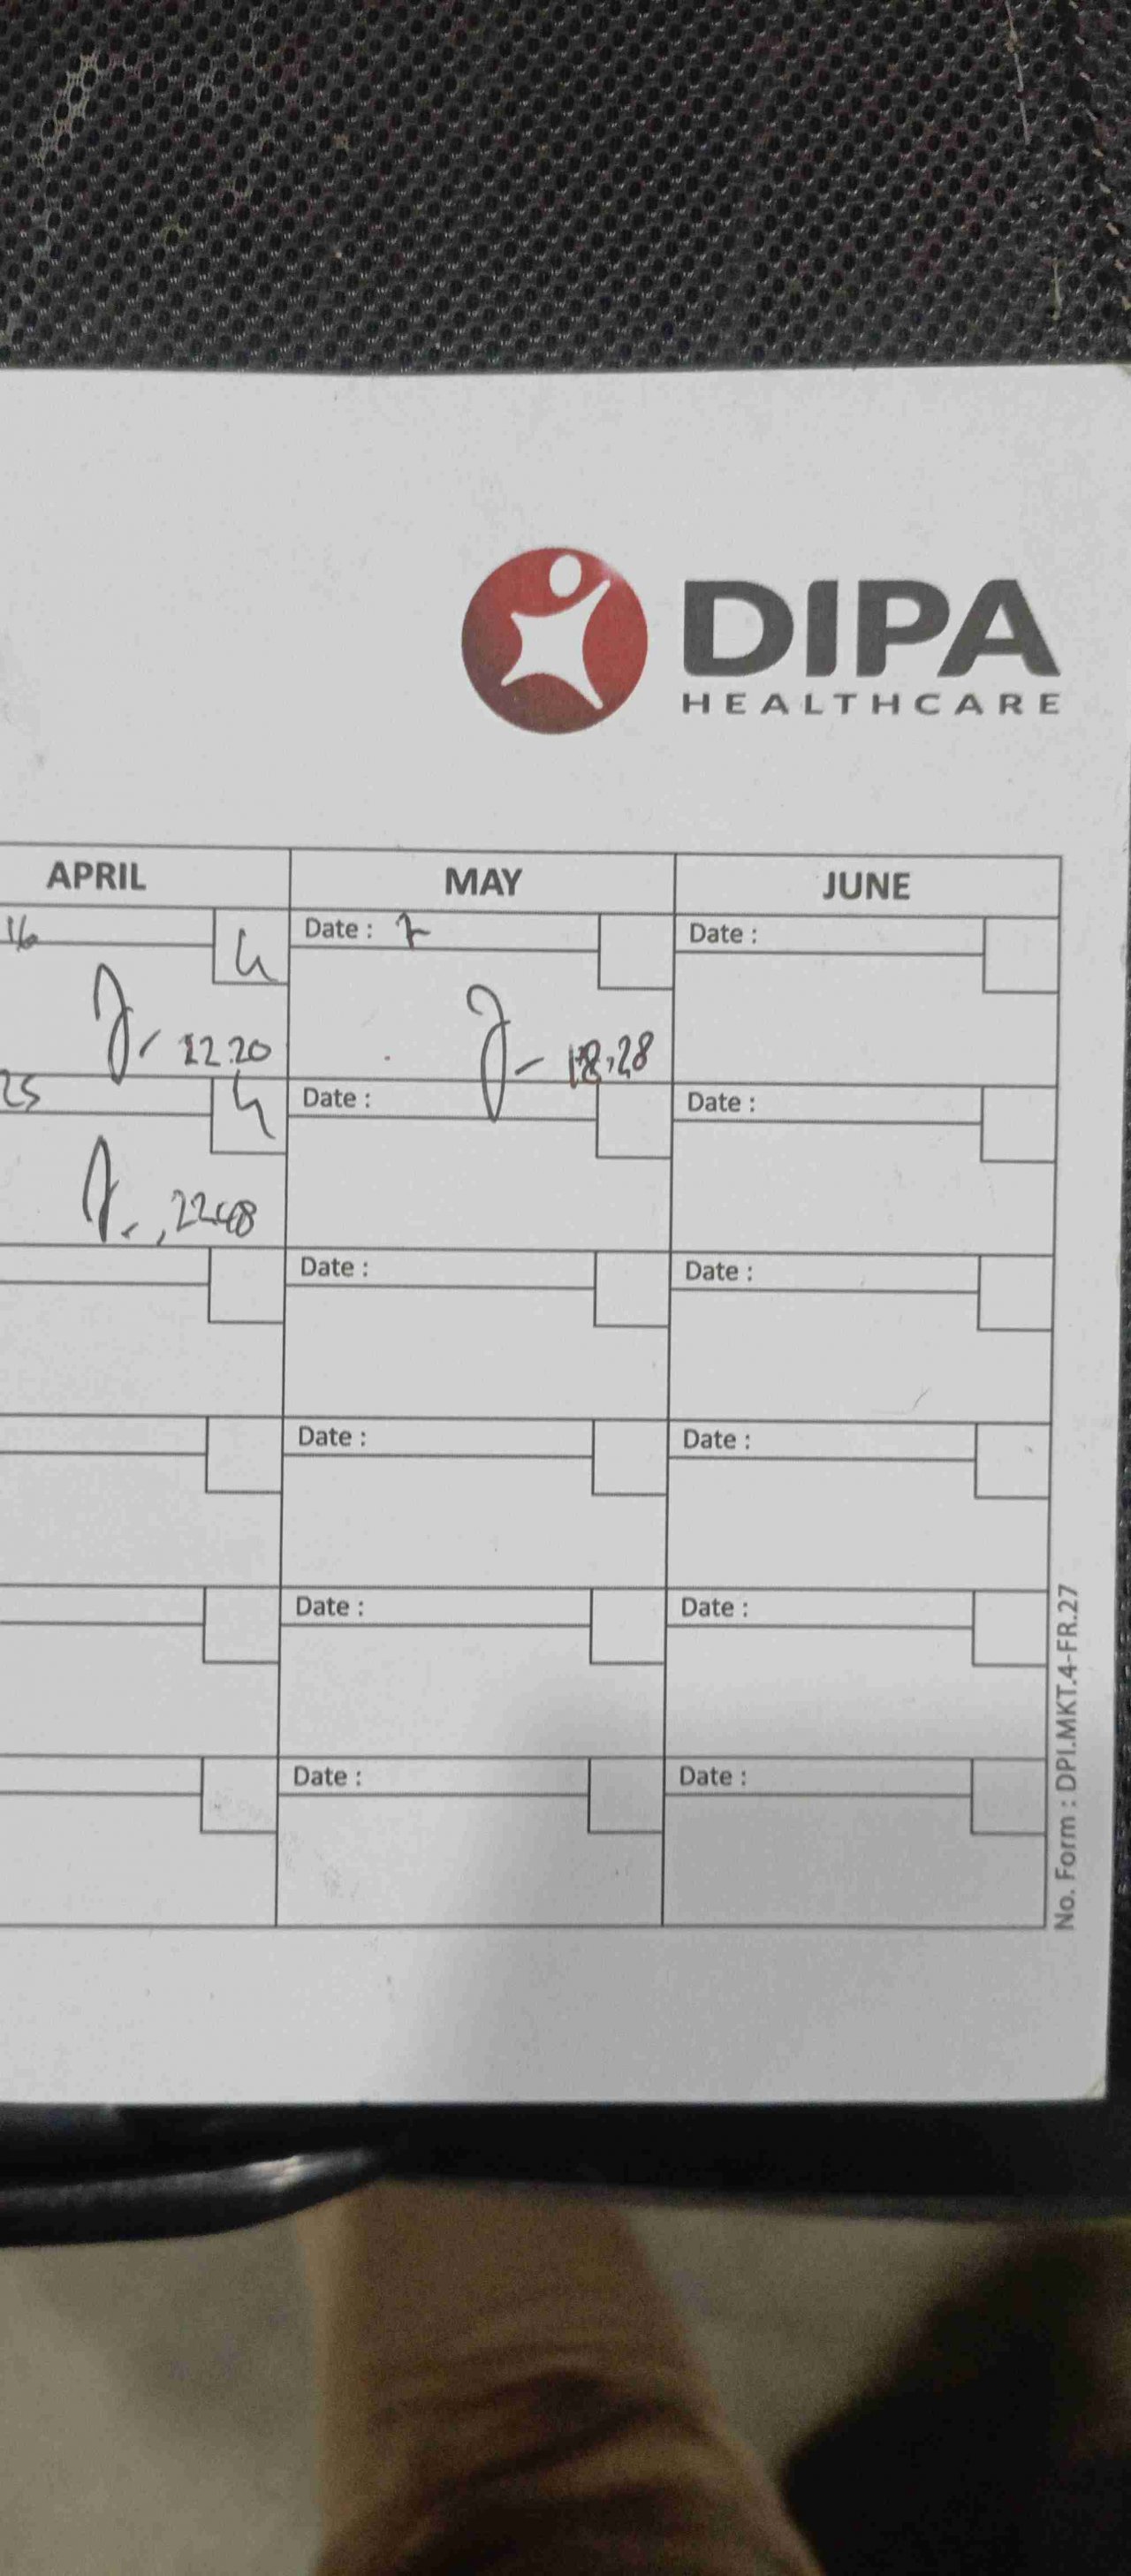 DIPA
HEALTHCARE
APRIL MAY JUNE
16 Date : 7 Date :
22.20 18.28
25 Date : Date :
22.48
Date : Date :
Date : Date :
Date : Date :
Date : Date :
No. Form : DPI.MKT.4-FR.27